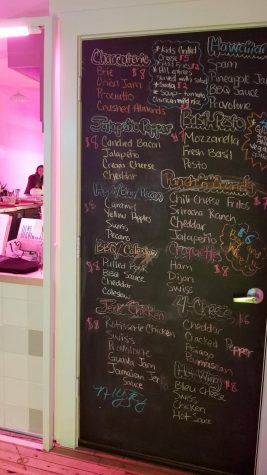 Charcuterie
Brie $8
Onion Jam
Prosciutto
Crushed Almonds
Jalapeño Popper
$8 Candied Bacon
Jalapeño
Cream Cheese
Cheddar
$8 Caramel
Yellow Apples
Swiss
Pecans
BBQ/Coleslaw
$8 Pulled Pork
BBQ Sauce
Cheddar
Coleslaw
Jerk Chicken
$8 Rotisserie Chicken
Swiss
Provolone
Guava Jam
Jamaican Jerk
Sauce
* Kids Grilled
Cheese $5
served with salad
* Soup - tomato
Hawaiian
Spam
Pineapple Jam
BBQ Sauce
Provolone
Basil-Pesto
Mozzarella
Fresh Basil
Pesto
Ranch n Crunch
Chili Cheese Fritos $8
Sriracha Ranch
Cheddar
Jalapeño
Croquettes
Ham
Dijon
Swiss
4-Cheese $6
Cheddar
Cracked Pepper
Asiago
Parmesan
Hot Wing $8
Bleu Cheese
Swiss
Chicken
Hot Sauce